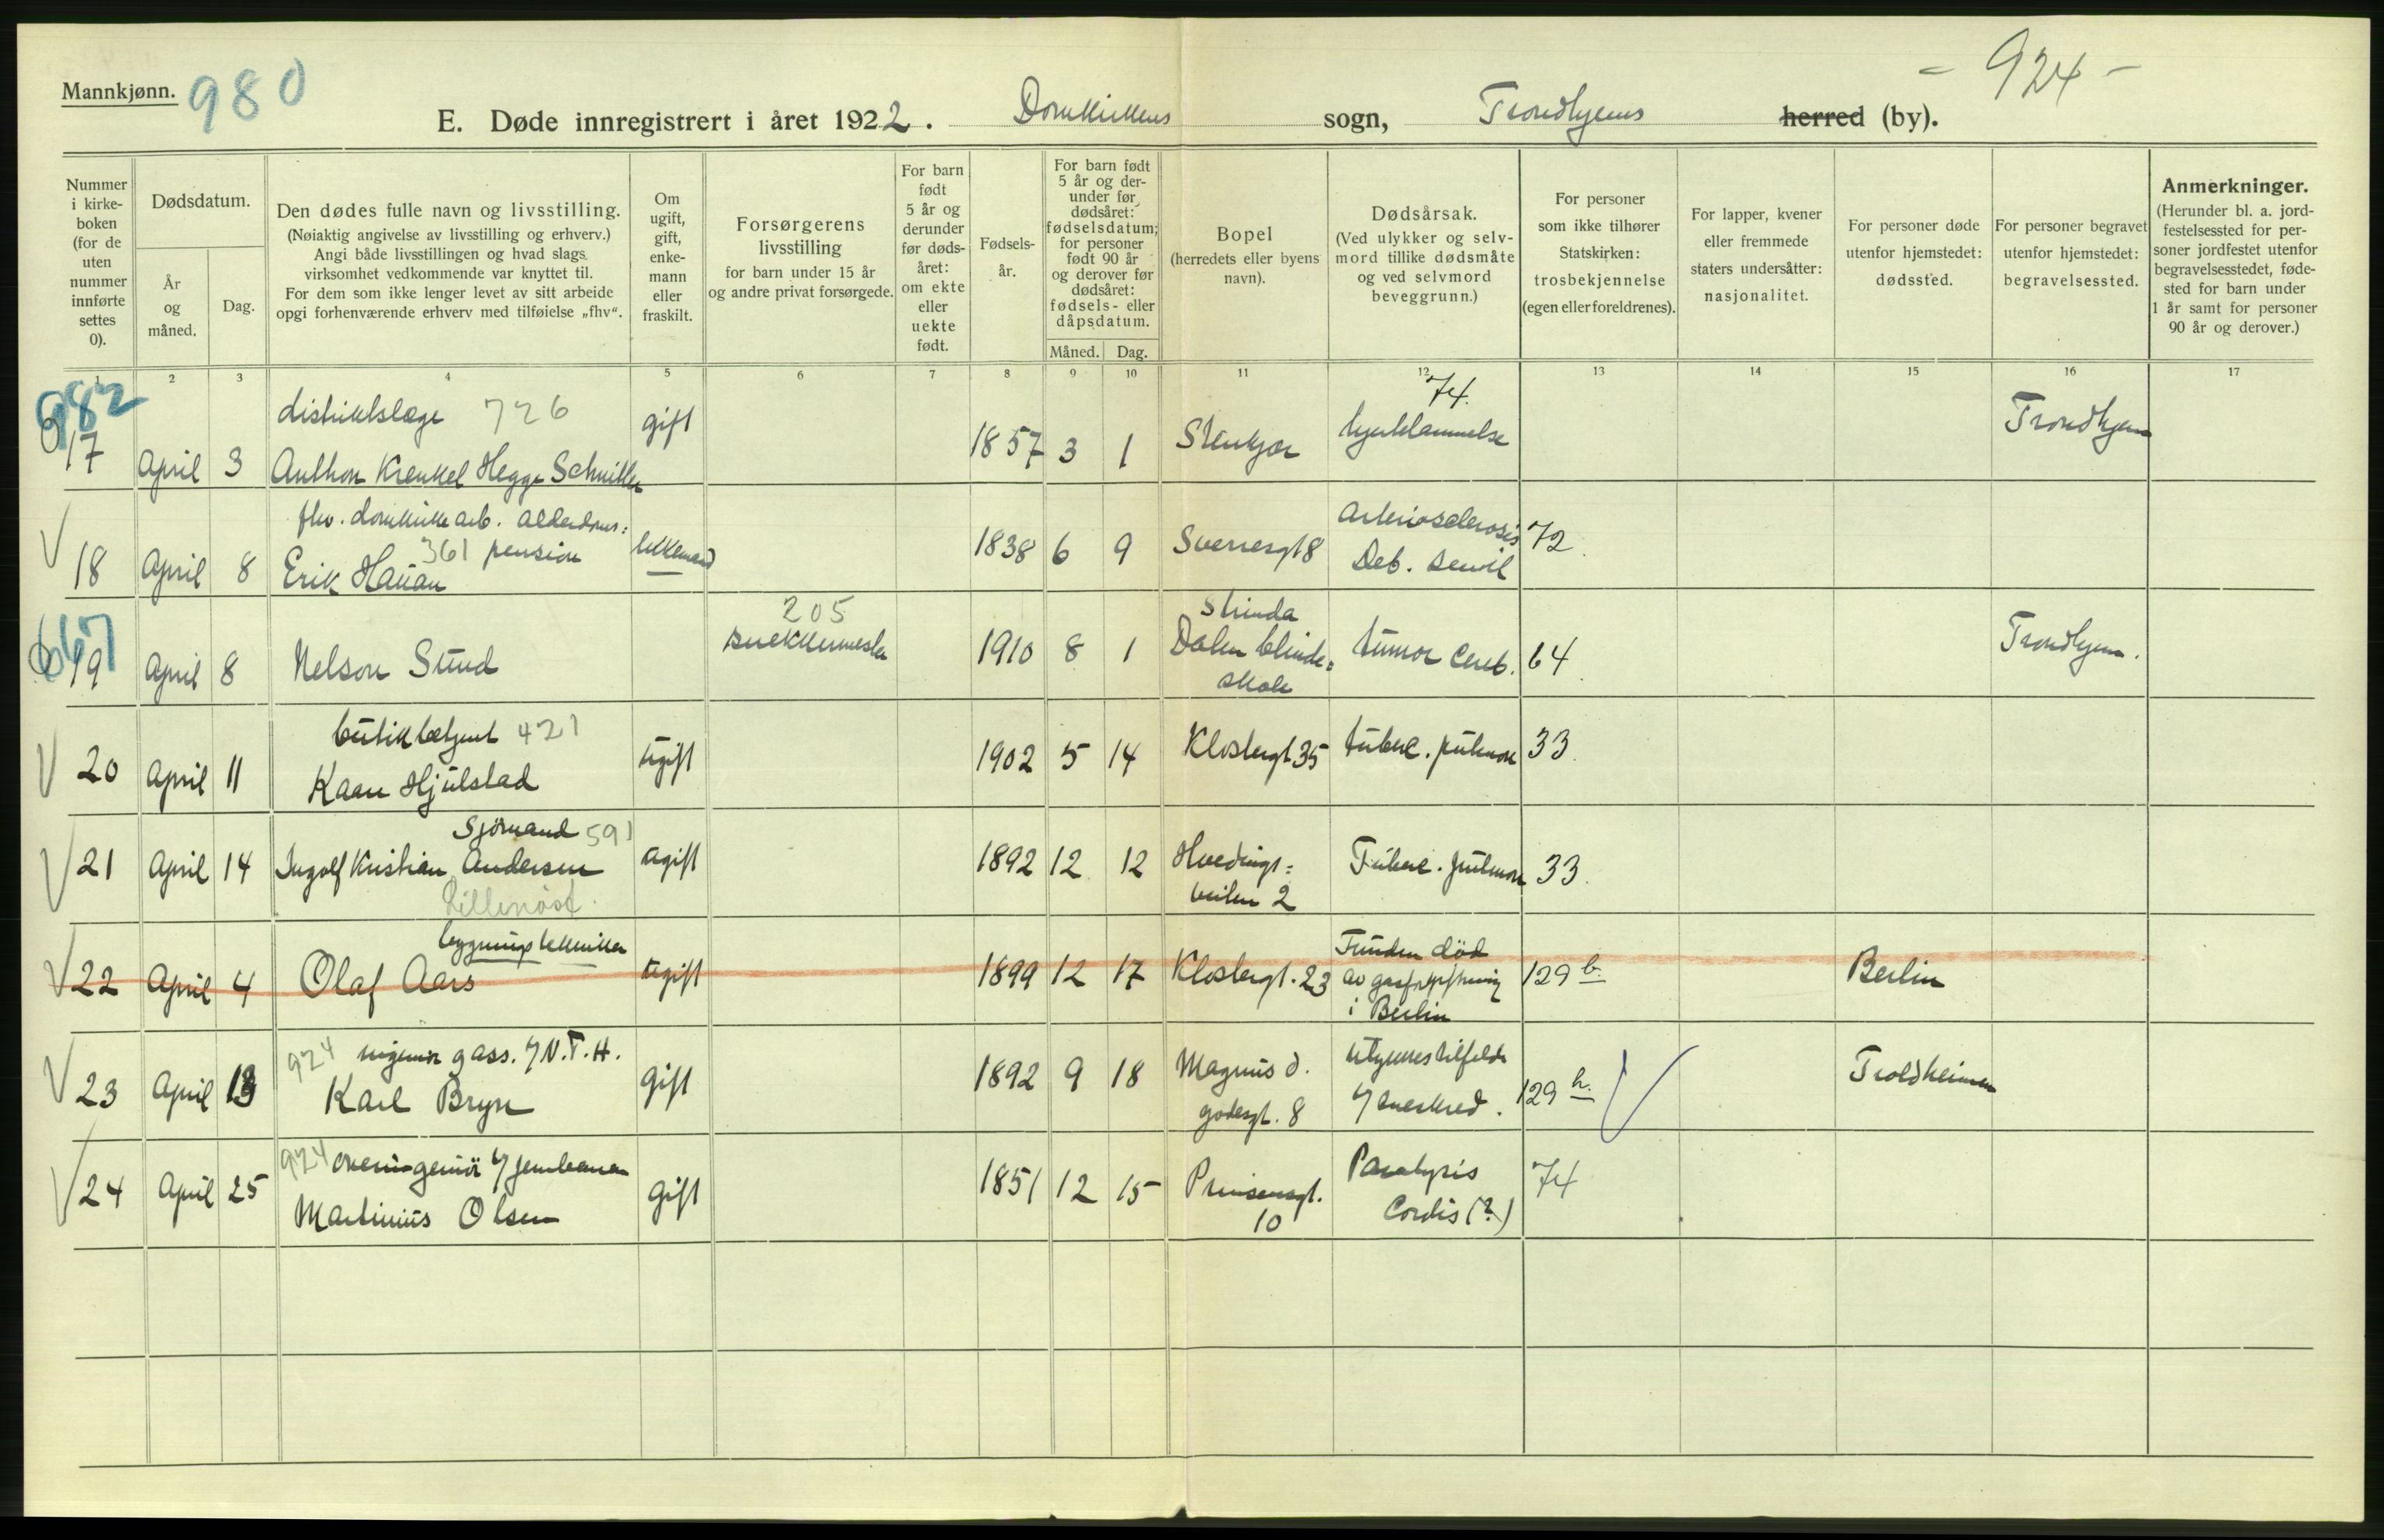 Mannkjønn. 980
- 924 -
E. Døde innregistrert i året 1922. Domkirkens sogn, Trondhjems herred (by).
Nummer i kirke-boken (for de uten nummer innførte settes 0).
Dødsdatum.
År og måned.
Dag.
Den dødes fulle navn og livsstilling.
(Nøiaktig angivelse av livsstilling og erhverv.)
Angi både livsstillingen og hvad slags virksomhet vedkommende var knyttet til.
For dem som ikke lenger levet av sitt arbeide opgi forhenværende erhverv med tilføielse „fhv“.
Om ugift, gift, enke-mann eller fraskilt.
Forsørgerens livsstilling
for barn under 15 år og andre privat forsørgede.
For barn født 5 år og derunder før døds-året: om ekte eller uekte født.
Fødsels-år.
For barn født 5 år og der-under før dødsåret: fødselsdatum; for personer født 90 år og derover før dødsåret: fødsels- eller dåpsdatum.
Måned. Dag.
Bopel
(herredets eller byens navn).
Dødsårsak.
(Ved ulykker og selv-mord tillike dødsmåte og ved selvmord beveggrunn.)
For personer som ikke tilhører Statskirken: trosbekjennelse (egen eller foreldrenes).
For lapper, kvener eller fremmede staters undersåtter: nasjonalitet.
For personer døde utenfor hjemstedet: dødssted.
For personer begravet utenfor hjemstedet: begravelsessted.
Anmerkninger.
(Herunder bl. a. jord-festelsessted for per-soner jordfestet utenfor begravelsesstedet, føde-sted for barn under 1 år samt for personer 90 år og derover.)
1 2 3 4 5 6 7 8 9 10 11 12 13 14 15 16 17
982
distriktslæge 726 gift 74.
0 17 April 3 Anthon Krenkel Hegge Schnitler 1857 3 1 Stenkjær hjertelammelse Trondhjem
fhv. domkirkearb. alderdoms=
361 pension
18 April 8 Erik Hauan 1838 6 9 Sverresgt 8 Arteriosclerosis 72
Deb. senil
667 205 Strinda
0 19 April 8 Nelson Stund snekkermester 1910 8 1 Dalen blinde=
skole tumor cereb. 64 Trondhjem.
butikbetjent 421
20 April 11 Kaare Hjulstad ugift 1902 5 14 Klostergt 35 tuberc. pulmon 33
Sjømand 591
21 April 14 Ingolf Kristian Andersen ugift 1892 12 12 Hvedings=
veiten 2 Tuberc. pulmon 33.
bygningstekniker
22 April 4 Olaf Aars ugift 1899 12 17 Klostergt. 23 Funden død
av gasforgiftning
i Berlin 129 b. Berlin
924 ingeniør g ass. v/ N.T.H.
23 April 13 Karl Bryn gift 1892 9 18 Magnus d.
godesgt. 8 Ulykkestilfelde
v/ sneskred. 129 h. Troldheimen
924 overingeniør v/ jernbanen
24 April 25 Martinius Olsen gift 1851 12 15 Prinsensgt.
10 Paralysis
Cordis (?) 74